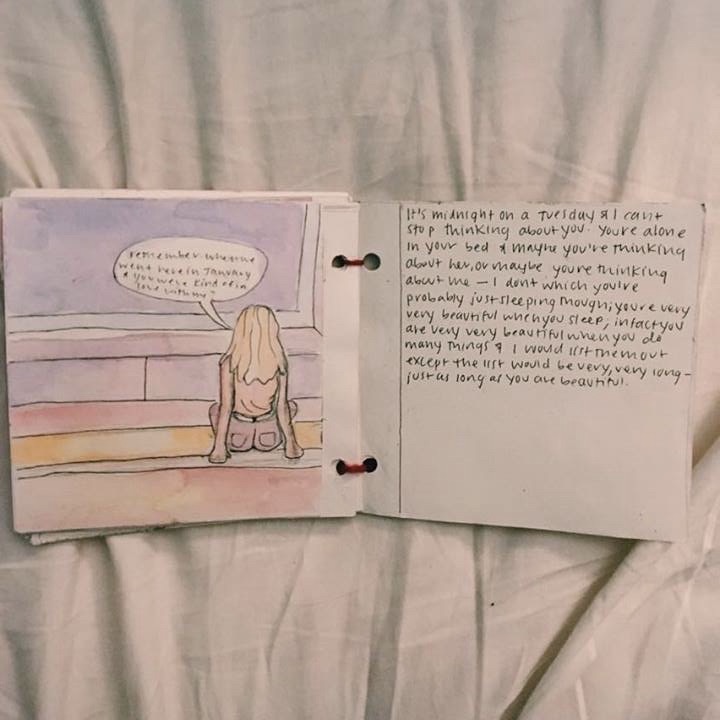 remember when we
went here in January
& you were kind of in
love with me?
It's midnight on a Tuesday & I can't
stop thinking about you. You're alone
in your bed & maybe you're thinking
about her, or maybe you're thinking
about me — I dont which you're
probably just sleeping though; you're very
very beautiful when you sleep, infact you
are very very beautiful when you do
many things & I would list them out
except the list would be very, very long –
just as long as you are beautiful.